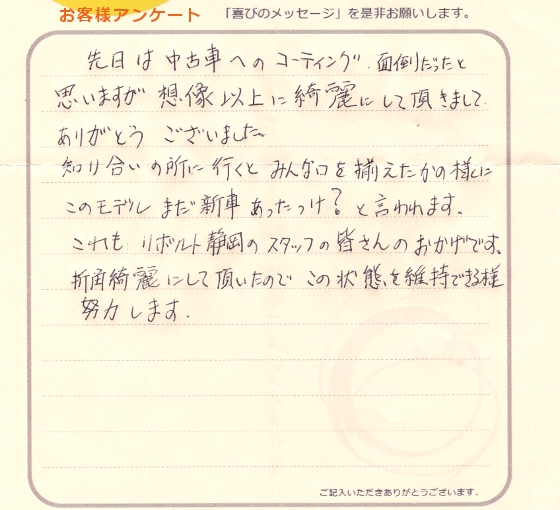 お客様アンケート 「喜びのメッセージ」を是非お願いします。
先日は中古車へのコーティング、面倒だったと
思いますが想像以上に綺麗にして頂きまして
ありがとうございました。
知り合いの所に行くとみんな口を揃えたかの様に
このモデルまだ新車あったっけ?と言われます。
これもリボルト静岡のスタッフの皆さんのおかげです。
折角綺麗にして頂いたのでこの状態を維持できる様
努力します。
ご記入いただきありがとうございます。